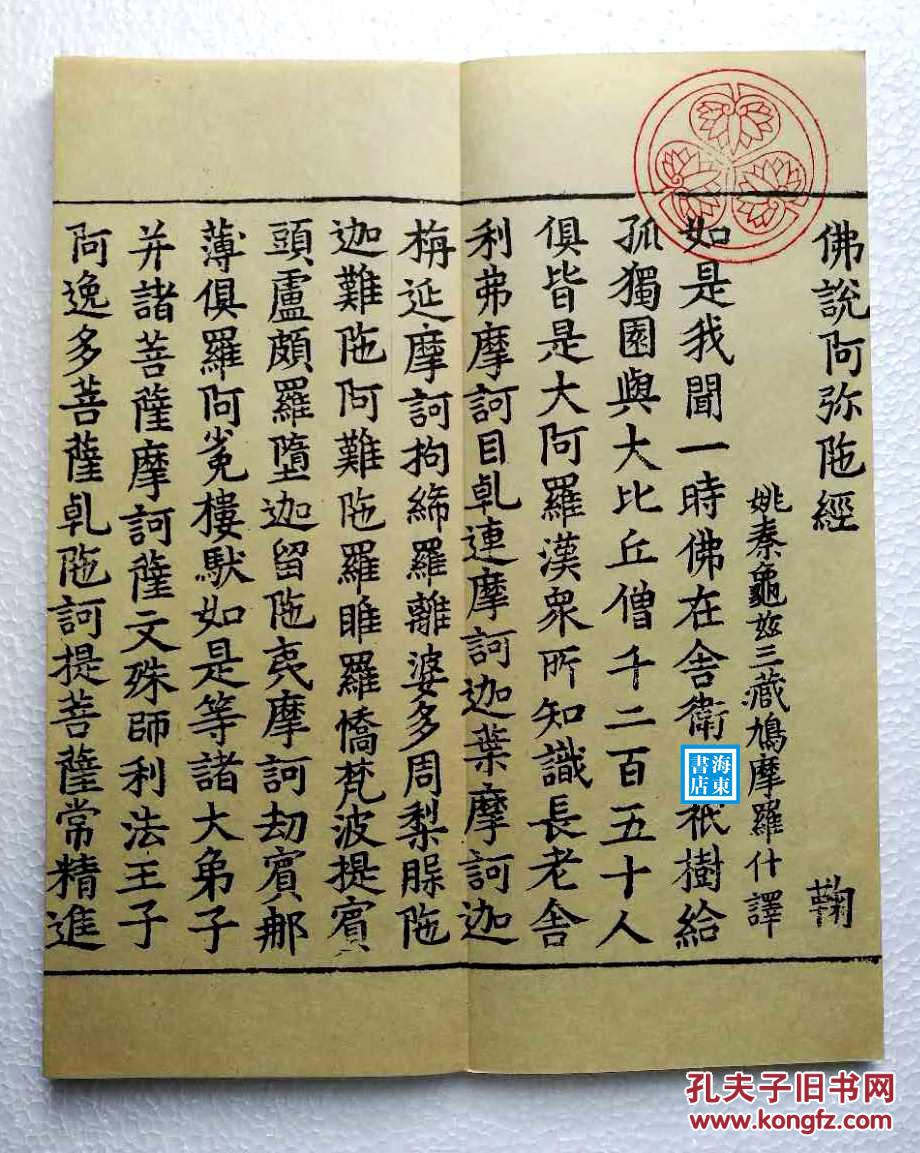 佛說阿弥陁經 鞠
姚秦龜玆三藏鳩摩羅什譯
如是我聞一時佛在舍衛祇樹給
孤獨園與大比丘僧千二百五十人
俱皆是大阿羅漢衆所知識長老舍
利弗摩訶目乹連摩訶迦葉摩訶迦
栴延摩訶拘絺羅離婆多周梨臊陁
迦難陁阿難陁羅睺羅憍梵波提賔
頭盧頗羅墮迦留陁夷摩訶劫賔那
薄俱羅阿㝹樓馱如是等諸大弟子
并諸菩薩摩訶薩文殊師利法王子
阿逸多菩薩乹陁訶提菩薩常精進
海東書店
孔夫子旧书网
www.kongfz.com